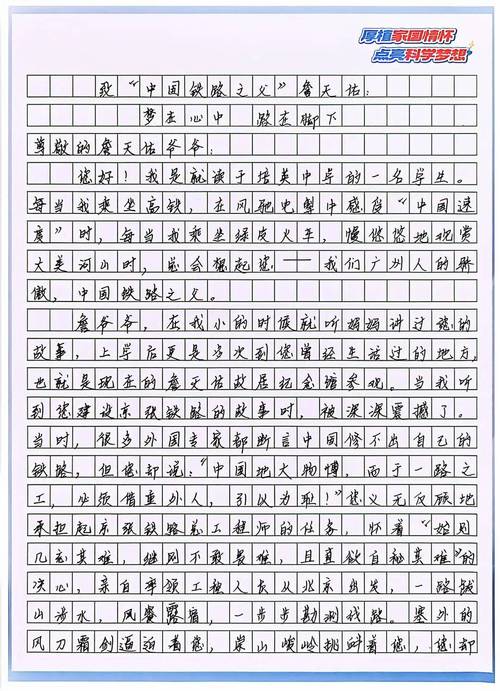 厚植家国情怀
点亮科学梦想
致“中国铁路之父”詹天佑：
梦在心中 路在脚下
尊敬的詹天佑爷爷：
您好！我是就读于培英中学的一名学生。
每当我乘坐高铁，在风驰电掣中感受“中国速
度”时，每当我乘坐绿皮火车，慢悠悠地观赏
大美河山时，总会想起您——我们广州人的骄
傲，中国铁路之父。
詹爷爷，在我小的时候就听妈妈讲过您的
故事，上学后更是多次到您曾经生活过的地方，
也就是现在的詹天佑故居纪念馆参观。当我听
到您建设京张铁路的故事时，被深深震撼了。
当时，很多外国专家都断言中国修不出自己的
铁路，但您却说：“中国地大物博，而于一路之
工，必须借重外人，引以为耻！”您义无反顾地
承担起京张铁路总工程师的任务，怀着“始则
几忘其难，继则不敢畏难，且直欲自秘其难”的
决心，亲自率领工程人员从北京出发，一路跋
山涉水，风餐露宿，一步步勘测线路。塞外的
风刀霜剑逼迫着您，崇山峻岭挑衅着您，您却